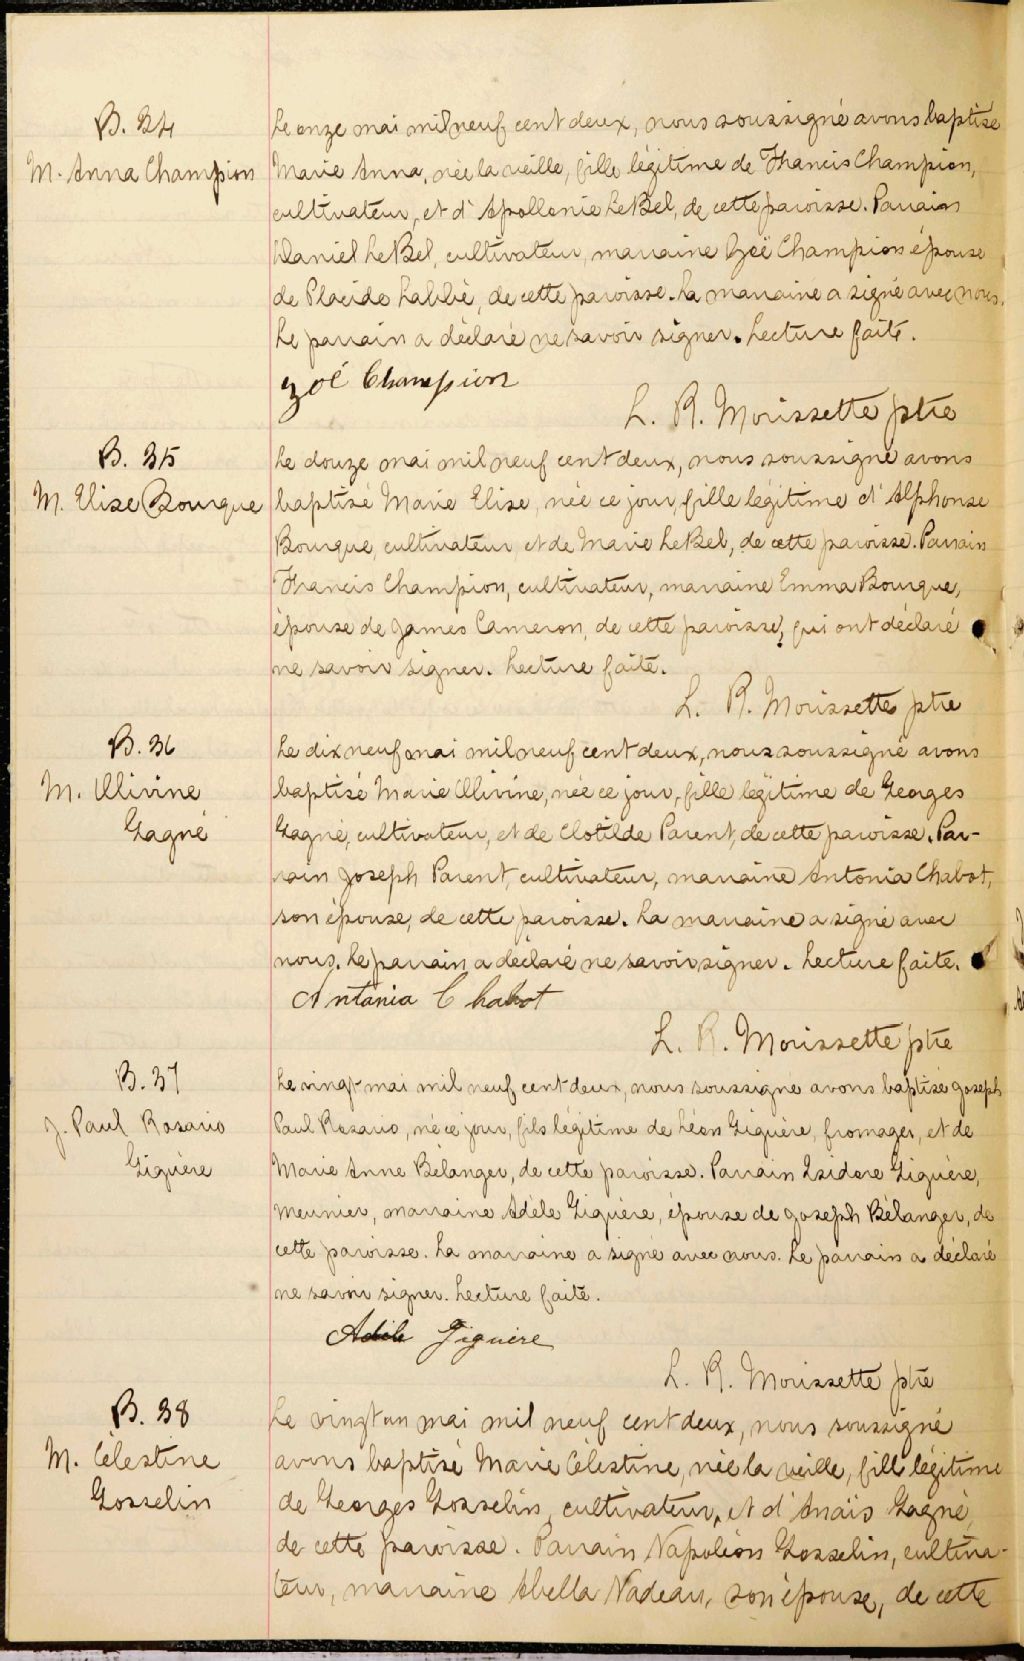 B. 34
M. Anna Champion
Le onze mai mil neuf cent deux, nous soussigné avons baptisé
Marie Anna, née la veille, fille légitime de Francis Champion,
cultivateur, et d'Apollonie LeBel, de cette paroisse. Parrain
Daniel LeBel, cultivateur, marraine Zoë Champion épouse
de Placide Labbé, de cette paroisse. La marraine a signé avec nous.
Le parrain a déclaré ne savoir signer. Lecture faite.
Zoé Champion
L. R. Morissette ptre
B. 35
M. Elise Bourque
Le douze mai mil neuf cent deux, nous soussigné avons
baptisé Marie Elise, née ce jour, fille légitime d'Alphonse
Bourque, cultivateur, et de Marie LeBel, de cette paroisse. Parrain
Francis Champion, cultivateur, marraine Emma Bourque,
épouse de James Cameron, de cette paroisse, qui ont déclaré
ne savoir signer. Lecture faite.
L. R. Morissette ptre
B. 36
M. Olivine
Gagné
Le dix neuf mai mil neuf cent deux, nous soussigné avons
baptisé Marie Olivine, née ce jour, fille légitime de Georges
Gagné, cultivateur, et de Clotilde Parent, de cette paroisse. Par-
rain Joseph Parent, cultivateur, marraine Antonia Chabot,
son épouse, de cette paroisse. La marraine a signé avec
nous. Le parrain a déclaré ne savoir signer. Lecture faite.
Antania Chabot
L. R. Morissette ptre
B. 37
J. Paul Rosario
Giguère
Le vingt mai mil neuf cent deux, nous soussigné avons baptisé Joseph
Paul Rosario, né ce jour, fils légitime de Léon Giguère, fromager, et de
Marie Anne Bélanger, de cette paroisse. Parrain Isidore Giguère,
meunier, marraine Adèle Giguère, épouse de Joseph Bélanger, de
cette paroisse. La marraine a signé avec nous. Le parrain a déclaré
ne savoir signer. Lecture faite.
Adèle Giguère
L. R. Morissette ptre
B. 38
M. Célestine
Gosselin
Le vingt un mai mil neuf cent deux, nous soussigné
avons baptisé Marie Célestine, née la veille, fille légitime
de Georges Gosselin, cultivateur, et d'Anaïs Gagné,
de cette paroisse. Parrain Napoléon Gosselin, cultiva-
teur, marraine Abella Nadeau, son épouse, de cette